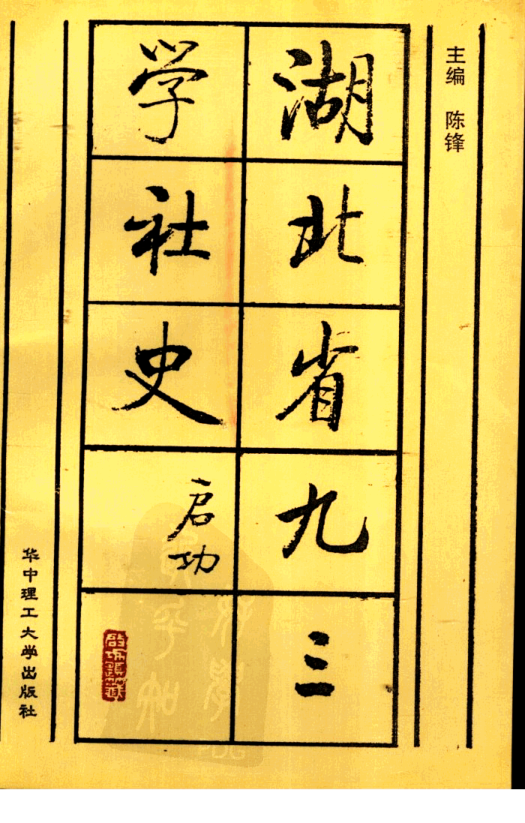 主编 陈锋
湖北省九三
学社史
启功
华中理工大学出版社
PDG